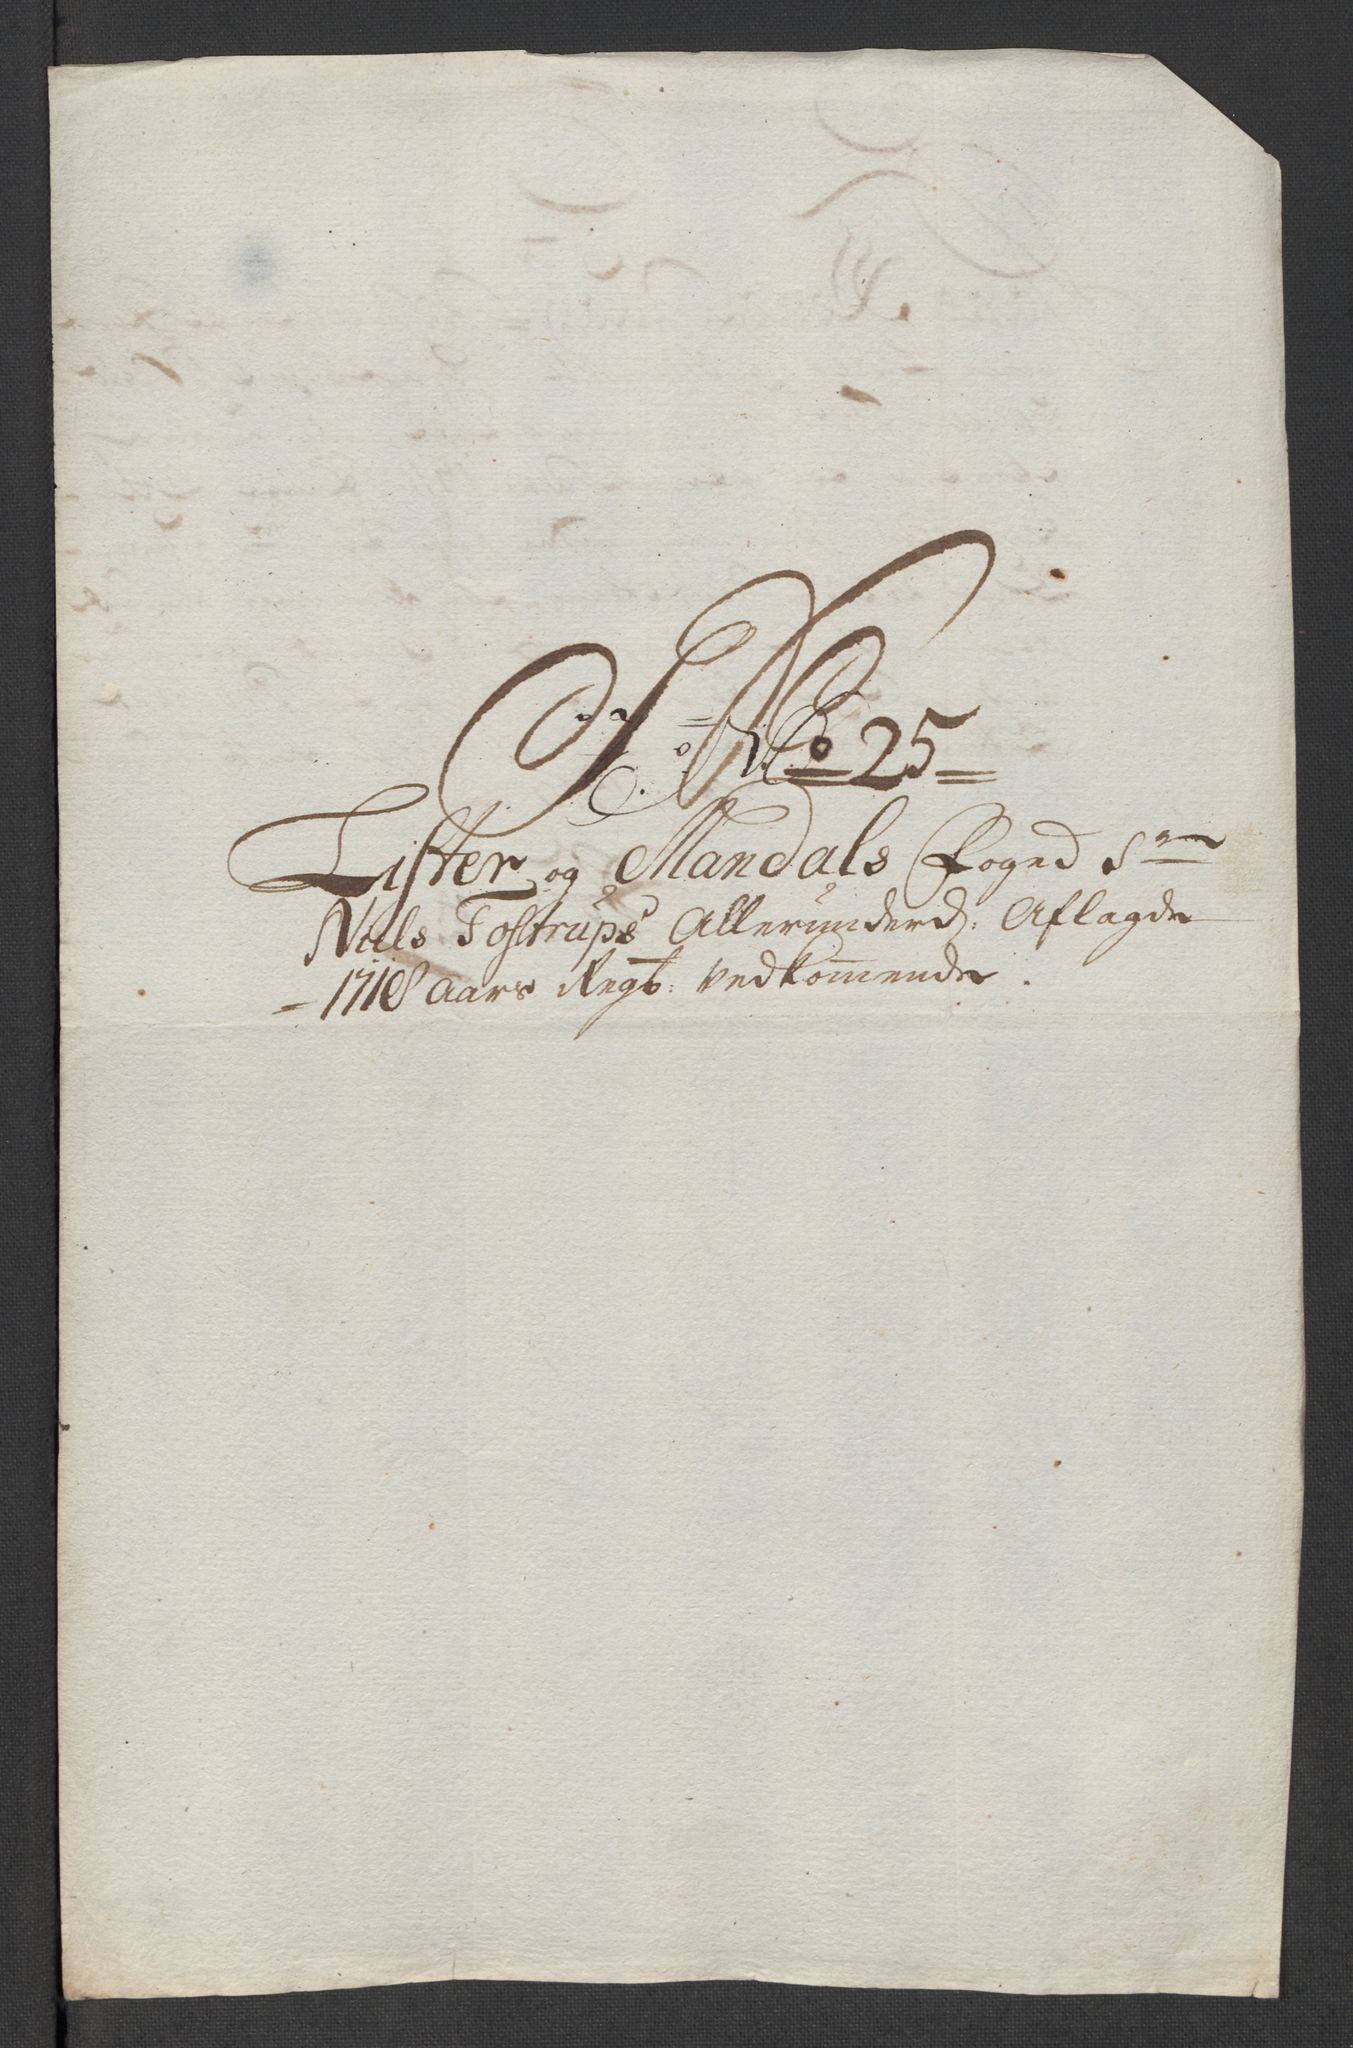 No 25
Lister og Mandals Foged Sr
Niels Tostrups Allerunderd: Aflagde
1718 Aars Regb: vedkommende.